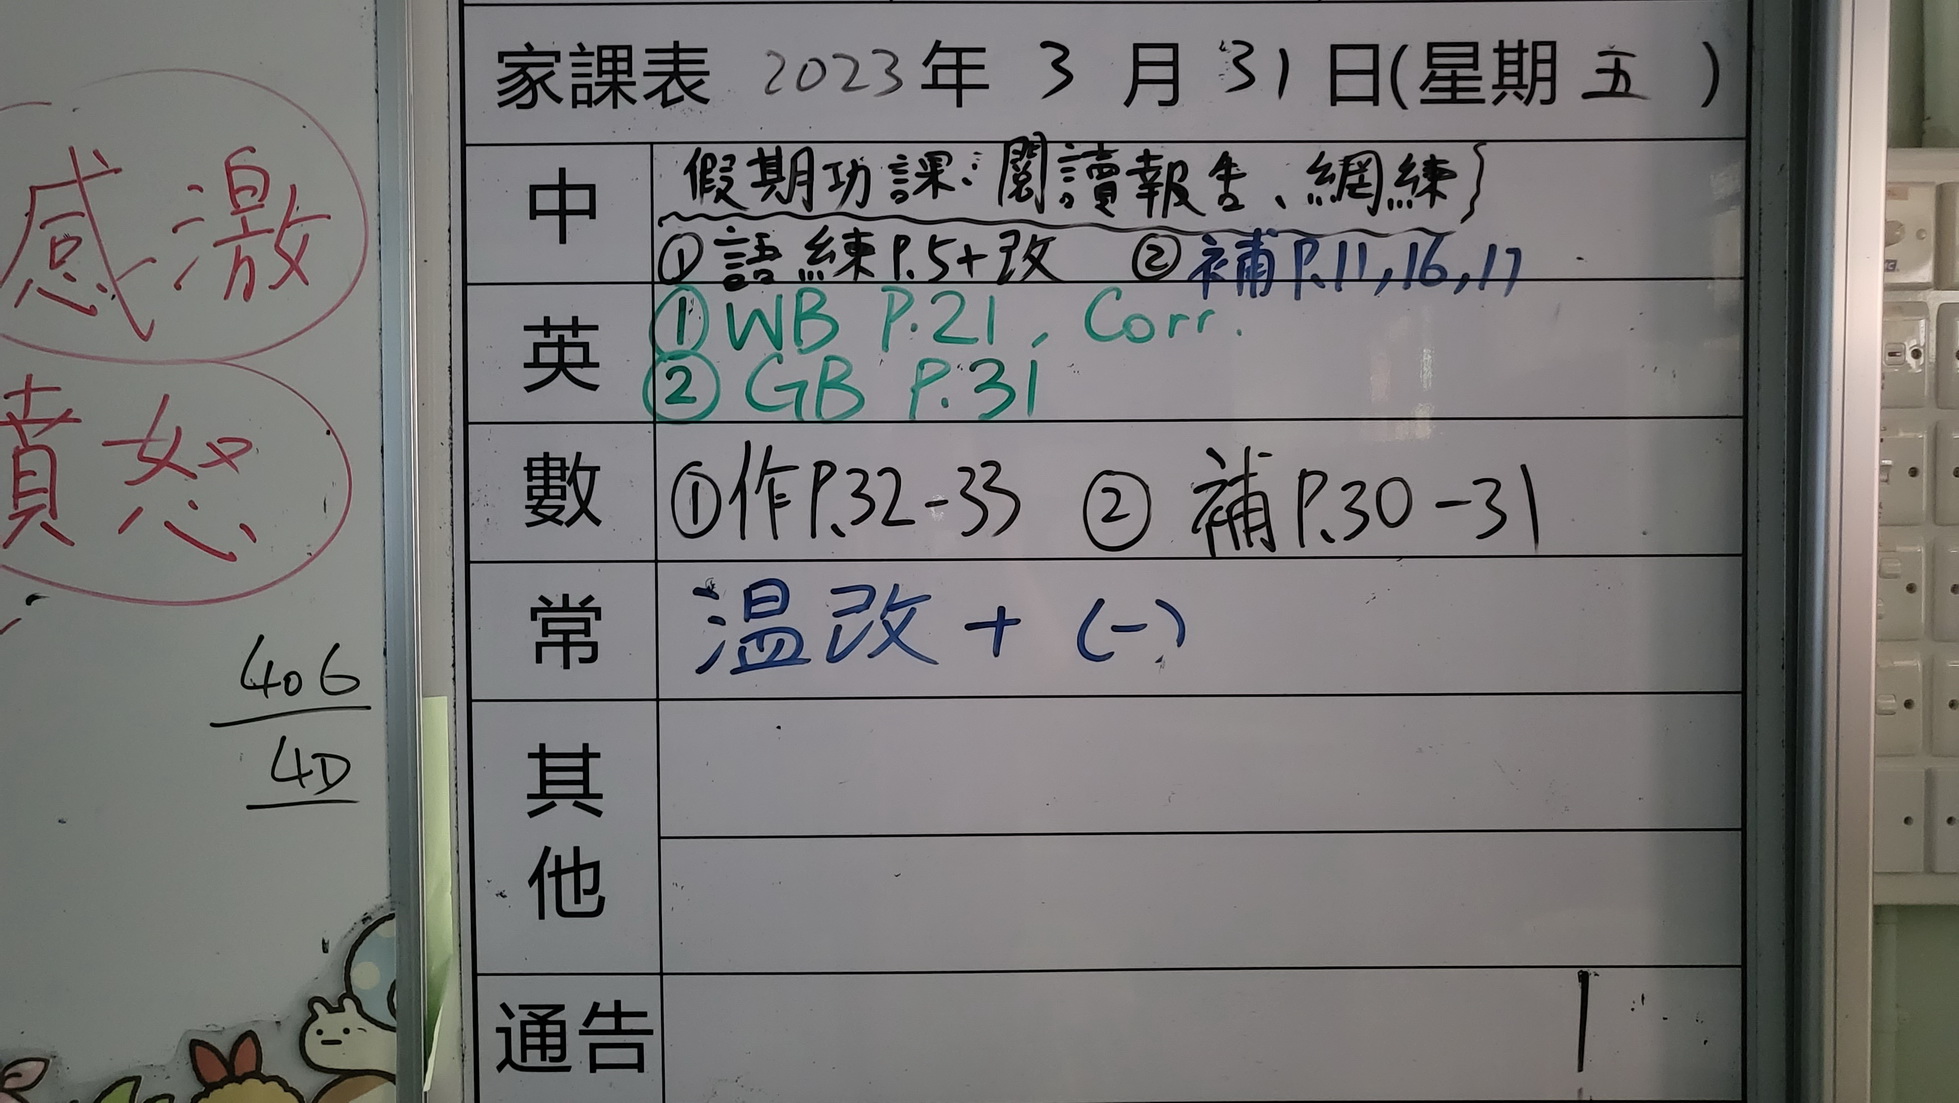 感激
憤怒
406
4D
家課表 2023年 3 月 31 日(星期 五 )
中
假期功課:閱讀報告、網練}
①語練P.5+改 ②補P.11,16,17
英
①WB P.21, Corr.
②GB P.31
數
①作P.32-33 ②補P.30-31
常
温改+(一)
其他
通告